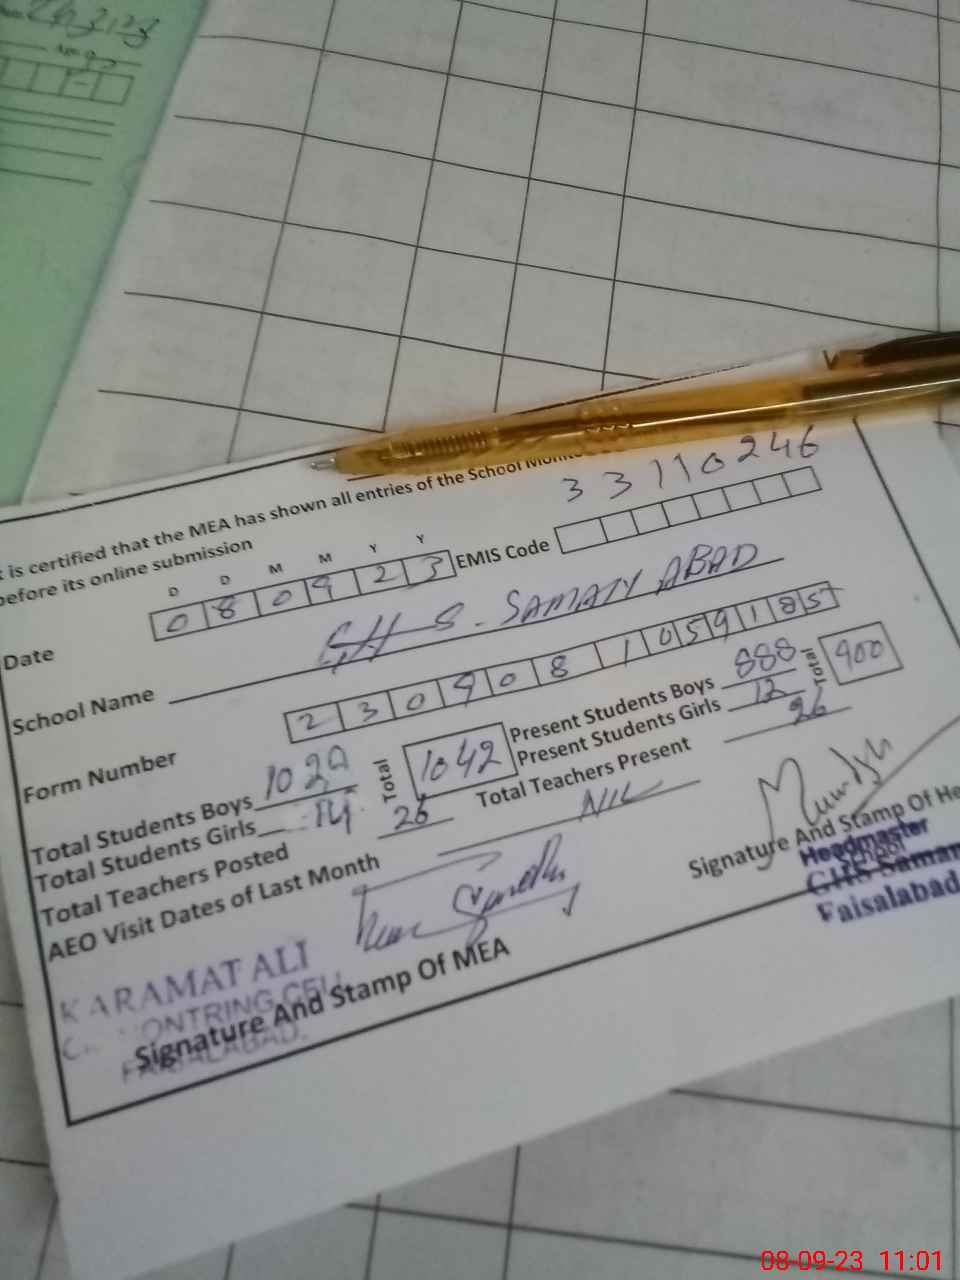 Age
t is certified that the MEA has shown all entries of the School
before its online submission
D D M M Y Y
Date 0 8 0 9 2 3 EMIS Code 33110246
School Name GHS-SAMANABAD
Form Number 2 3 0 9 0 8 1 0 5 9 1 8 5
Total Students Boys 1028 Total 1042 Present Students Boys 888 Total 900
Total Students Girls 14 Present Students Girls 12
Total Teachers Posted 26 Total Teachers Present 26
AEO Visit Dates of Last Month NIL
Signature And Stamp Of He
Headmaster
GHS Saman
Faisalabad
KARAMAT ALI
ONTRING CELL
FAISALABAD.
Signature And Stamp Of MEA
08-09-23 11:01